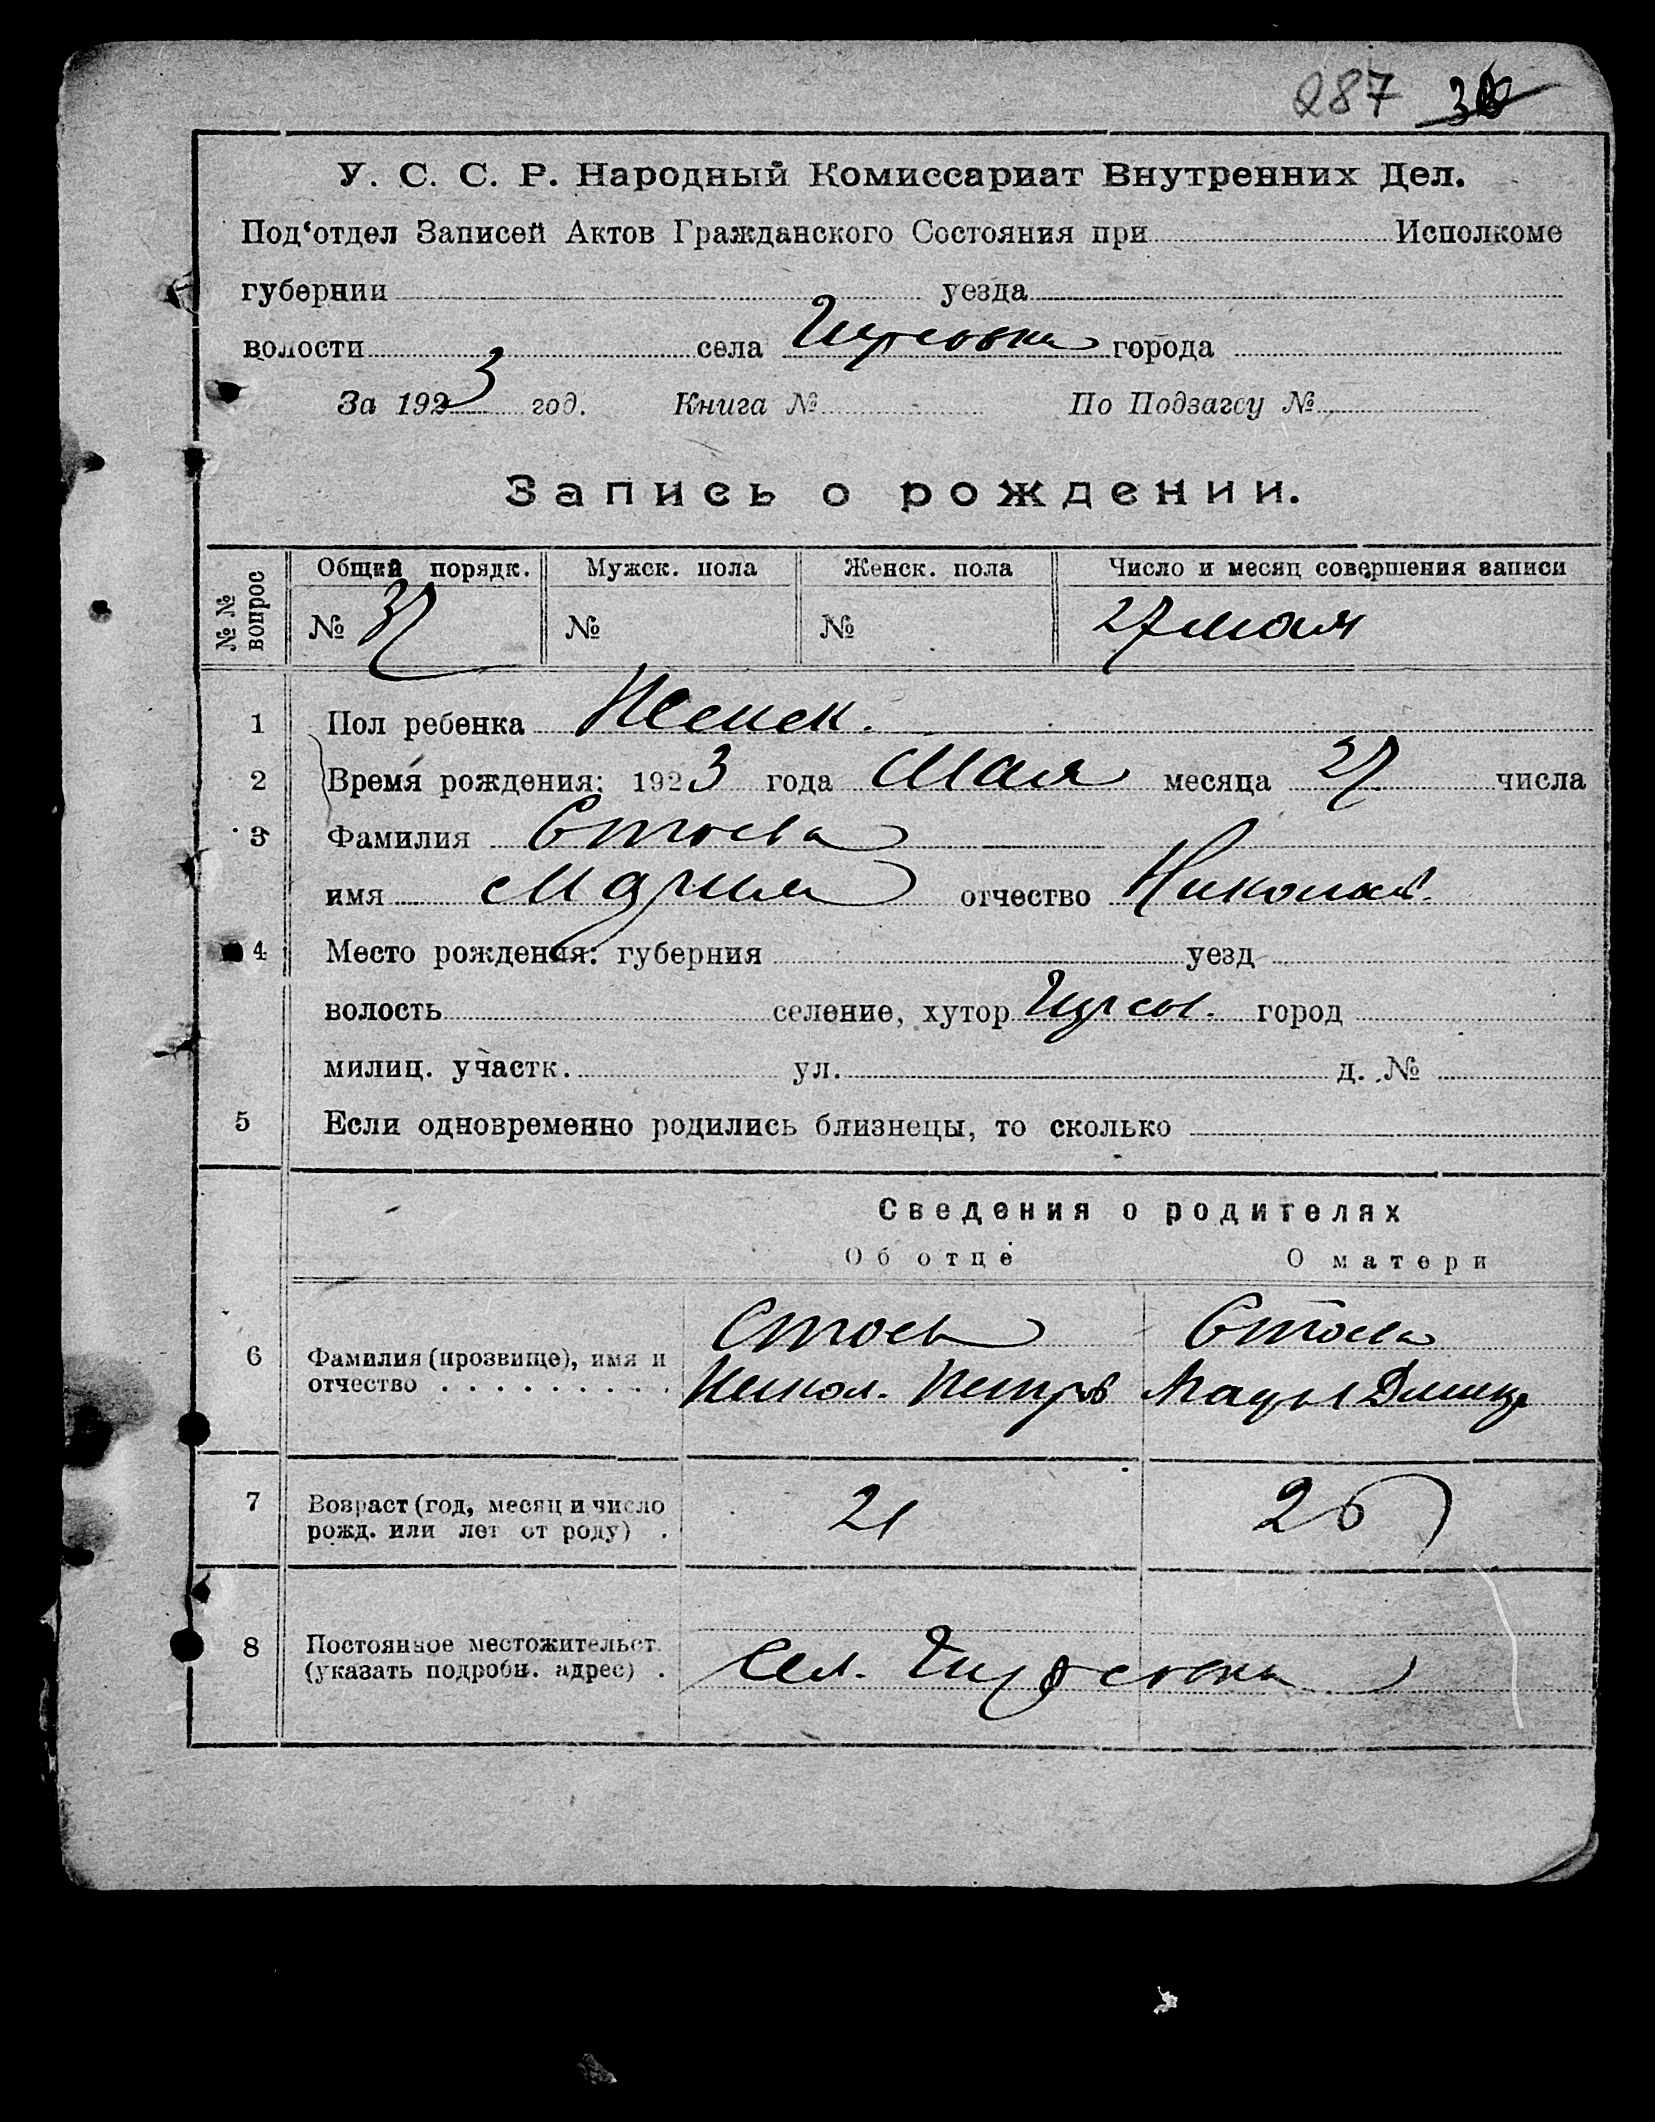 287
У. С. С. Р. Народный Комиссариат Внутренних Дел.
Под‘отдел Записей Актов Гражданского Состояния при Исполкоме
губернии уезда
волости села города
За 1923 год. Книга № По Подзагсу №
Запись о рождении.
№ № вопрос Общий порядк. Мужск. пола Женск. пола Число и месяц совершения записи
№ 37 № № 27 мая
1 Пол ребенка Женск.
2 Время рождения: 1923 года Мая месяца 27 числа
3 Фамилия Стоева
имя Мария отчество Николаев.
4 Место рождения: губерния уезд
волость селение, хутор город
милиц. участк. ул. д. №
5 Если одновременно родились близнецы, то сколько
Сведения о родителях
Об отце О матери
Стоев Стоева
6 Фамилия (прозвище), имя и отчество Никол. Петров
7 Возраст (год, месяц и число рожд. или лет от роду) 21
8 Постоянное местожительст. (указать подробн. адрес) Сел.